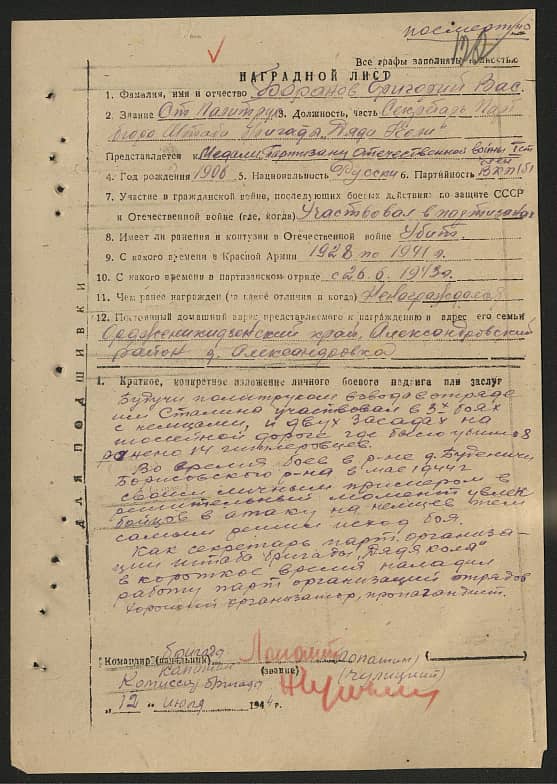 посмертно
Все графы заполнять полностью
НАГРАДНОЙ ЛИСТ
1. Фамилия, имя и отчество Бобранов Григорий Вас.
2. Звание Ст. Политрук 3. Должность, часть Секретарь Парт
бюро Штаба бригады "Дяди Коли"
Представляется к Медали "Партизану Отечественной войны" I ст
4. Год рождения 1906 5. Национальность Русский 6. Партийность Член ВКП(б)
7. Участие в гражданской войне, последующих боевых действиях по защите СССР
и Отечественной войне (где, когда) Участвовал в партизанах
8. Имеет ли ранения и контузии в Отечественной войне Убит.
9. С какого времени в Красной Армии 1928 по 1941 г.
10. С какого времени в партизанском отряде с 26. 6. 1943г.
11. Чем ранее награжден (за какие отличия и когда) Ненаграждался
12. Постоянный домашний адрес представляемого к награждению и адрес его семьи
Орджоникидзевский край, Александровский
район д. Александровка
1. Краткое, конкретное изложение личного боевого подвига или заслуг
Будучи политруком взвода в отряде
им Сталина участвовал в 3х боях
с немцами, и двух засадах на
шоссейной дороге где было убито 8
ранено 14 гитлеровцев.
Во время боев в р-не д. Бутеничи
Борисовского р-на в мае 1944г
своим личным примером в
решительный момент увлек
бойцов в атаку на немцев тем
самым решил исход боя.
Как секретарь парт. организа-
ции штаба бригады "Дядя Коля"
в короткое время наладил
работу парт организаций отрядов
хороший организатор, пропагандист.
ДЛЯ ПОДШИВКИ
Командир (начальник) бригады
капитан (звание) (Лопатин)
Комиссар бригады (Чулицкий)
"12" июля 1944 г.